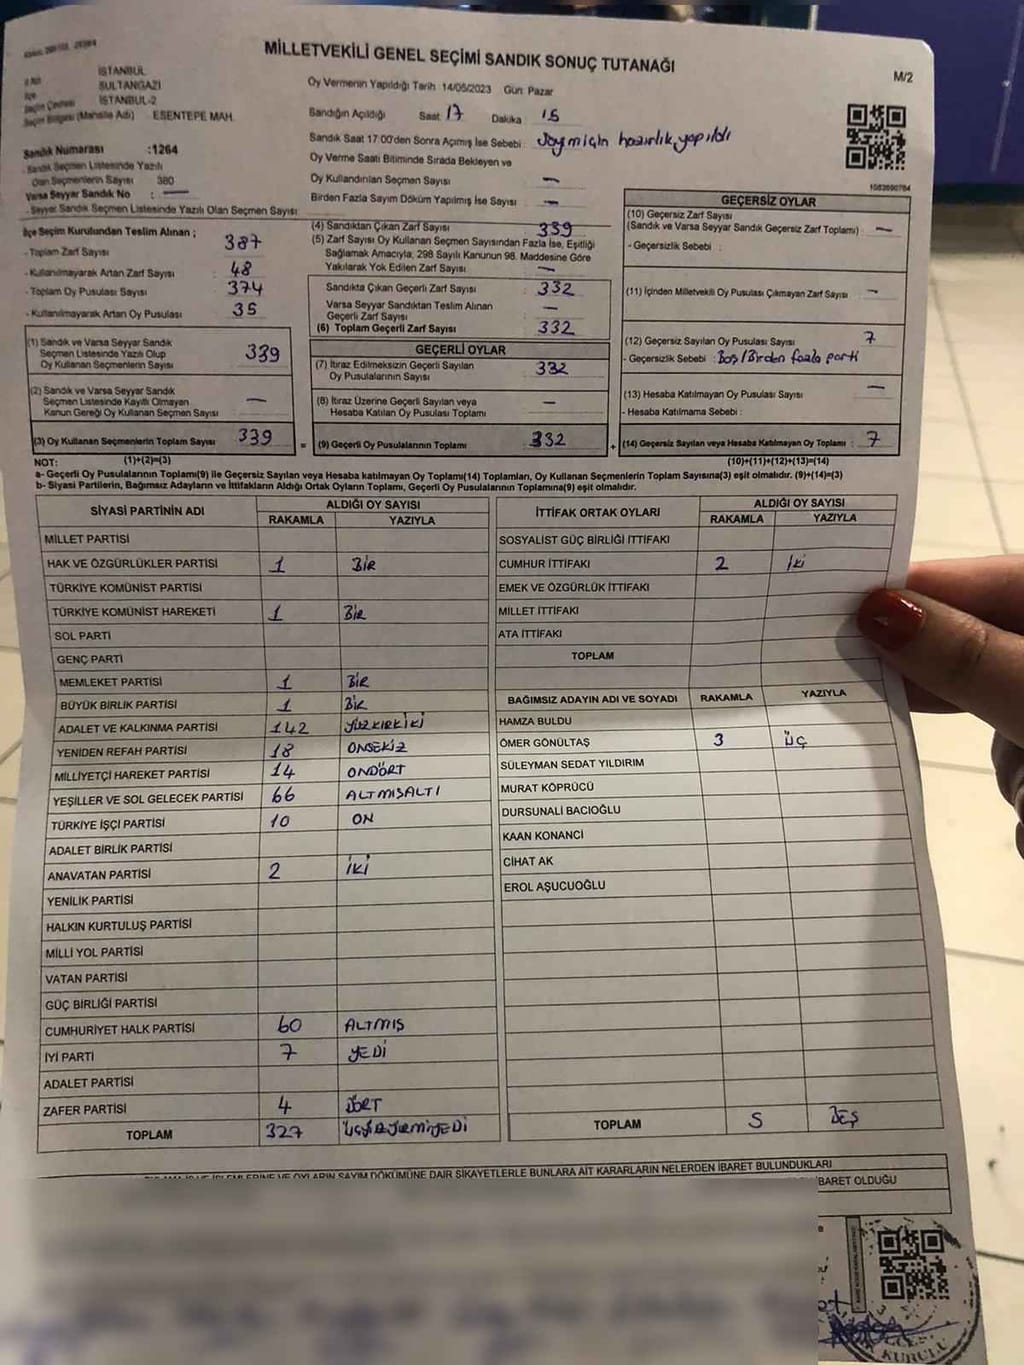 MİLLETVEKİLİ GENEL SEÇİMİ SANDIK SONUÇ TUTANAĞI
M/2
İSTANBUL
İlçe SULTANGAZİ
Seçim Çevresi İSTANBUL-2
Seçim Bölgesi (Mahalle Adı) ESENTEPE MAH.
Oy Vermenin Yapıldığı Tarih 14/05/2023 Gün Pazar
Sandığın Açıldığı Saat 17 Dakika 15
Sandık Saat 17:00'den Sonra Açımış İse Sebebi: Sayım için hazırlık yapıldı
Oy Verme Saati Bitiminde Sırada Bekleyen ve
Oy Kullandırılan Seçmen Sayısı : —
Birden Fazla Sayım Döküm Yapılmış İse Sayısı : —
1083690784
Sandık Numarası :1264
- Sandık Seçmen Listesinde Yazılı
Olan Seçmenlerin Sayısı 380
Varsa Seyyar Sandık No : —
- Seyyar Sandık Seçmen Listesinde Yazılı Olan Seçmen Sayısı
İlçe Seçim Kurulundan Teslim Alınan ;
- Toplam Zarf Sayısı 387
- Kullanılmayarak Artan Zarf Sayısı 48
- Toplam Oy Pusulası Sayısı 374
- Kullanılmayarak Artan Oy Pusulası 35
(1) Sandık ve Varsa Seyyar Sandık
Seçmen Listesinde Yazılı Olup
Oy Kullanan Seçmenlerin Sayısı 339
(2) Sandık ve Varsa Seyyar Sandık
Seçmen Listesinde Kayıtlı Olmayan
Kanun Gereği Oy Kullanan Seçmen Sayısı —
(3) Oy Kullanan Seçmenlerin Toplam Sayısı 339
(1)+(2)=(3)
(4) Sandıktan Çıkan Zarf Sayısı : 339
(5) Zarf Sayısı Oy Kullanan Seçmen Sayısından Fazla İse, Eşitliği
Sağlamak Amacıyla, 298 Sayılı Kanunun 98. Maddesine Göre
Yakılarak Yok Edilen Zarf Sayısı : —
Sandıkta Çıkan Geçerli Zarf Sayısı : 332
Varsa Seyyar Sandıktan Teslim Alınan
Geçerli Zarf Sayısı : —
(6) Toplam Geçerli Zarf Sayısı : 332
GEÇERLİ OYLAR
(7) İtiraz Edilmeksizin Geçerli Sayılan
Oy Pusulalarının Sayısı : 332
(8) İtiraz Üzerine Geçerli Sayılan veya
Hesaba Katılan Oy Pusulası Toplamı : —
= (9) Geçerli Oy Pusulalarının Toplamı : 332
GEÇERSİZ OYLAR
(10) Geçersiz Zarf Sayısı
(Sandık ve Varsa Seyyar Sandık Geçersiz Zarf Toplamı) : —
- Geçersizlik Sebebi :
(11) İçinden Milletvekili Oy Pusulası Çıkmayan Zarf Sayısı : —
(12) Geçersiz Sayılan Oy Pusulası Sayısı : 7
- Geçersizlik Sebebi : Boş/Birden fazla parti
(13) Hesaba Katılmayan Oy Pusulası Sayısı : —
- Hesaba Katılmama Sebebi :
+ (14) Geçersiz Sayılan veya Hesaba Katılmayan Oy Toplamı : 7
(10)+(11)+(12)+(13)=(14)
NOT:
a- Geçerli Oy Pusulalarının Toplamı(9) ile Geçersiz Sayılan veya Hesaba katılmayan Oy Toplamı(14) Toplamları, Oy Kullanan Seçmenlerin Toplam Sayısına(3) eşit olmalıdır. (9)+(14)=(3)
b- Siyasi Partilerin, Bağımsız Adayların ve İttifakların Aldığı Ortak Oyların Toplamı, Geçerli Oy Pusulalarının Toplamına(9) eşit olmalıdır.
SİYASİ PARTİNİN ADI ALDIĞI OY SAYISI
RAKAMLA YAZIYLA
MİLLET PARTİSİ
HAK VE ÖZGÜRLÜKLER PARTİSİ 1 BİR
TÜRKİYE KOMÜNİST PARTİSİ
TÜRKİYE KOMÜNİST HAREKETİ 1 BİR
SOL PARTİ
GENÇ PARTİ
MEMLEKET PARTİSİ 1 BİR
BÜYÜK BİRLİK PARTİSİ 1 BİR
ADALET VE KALKINMA PARTİSİ 142 YÜZKIRKİKİ
YENİDEN REFAH PARTİSİ 18 ONSEKİZ
MİLLİYETÇİ HAREKET PARTİSİ 14 ONDÖRT
YEŞİLLER VE SOL GELECEK PARTİSİ 66 ALTMIŞALTI
TÜRKİYE İŞÇİ PARTİSİ 10 ON
ADALET BİRLİK PARTİSİ
ANAVATAN PARTİSİ 2 İKİ
YENİLİK PARTİSİ
HALKIN KURTULUŞ PARTİSİ
MİLLİ YOL PARTİSİ
VATAN PARTİSİ
GÜÇ BİRLİĞİ PARTİSİ
CUMHURİYET HALK PARTİSİ 60 ALTMIS
İYİ PARTİ 7 YEDİ
ADALET PARTİSİ
ZAFER PARTİSİ 4 DÖRT
TOPLAM 327 ÜÇYÜZYİRMİYEDİ
İTTİFAK ORTAK OYLARI ALDIĞI OY SAYISI
RAKAMLA YAZIYLA
SOSYALİST GÜÇ BİRLİĞİ İTTİFAKI
CUMHUR İTTİFAKI 2 İki
EMEK VE ÖZGÜRLÜK İTTİFAKI
MİLLET İTTİFAKI
ATA İTTİFAKI
TOPLAM
BAĞIMSIZ ADAYIN ADI VE SOYADI RAKAMLA YAZIYLA
HAMZA BULDU
ÖMER GÖNÜLTAŞ 3 ÜÇ
SÜLEYMAN SEDAT YILDIRIM
MURAT KÖPRÜCÜ
DURSUNALİ BACIOĞLU
KAAN KONANCİ
CİHAT AK
EROL AŞUCUOĞLU
TOPLAM 5 BEŞ
OYLARIN SAYIM DÖKÜMÜNE DAİR ŞİKAYETLERLE BUNLARA AİT KARARLARIN NELERDEN İBARET BULUNDUKLARI
İBARET OLDUĞU
KURULU